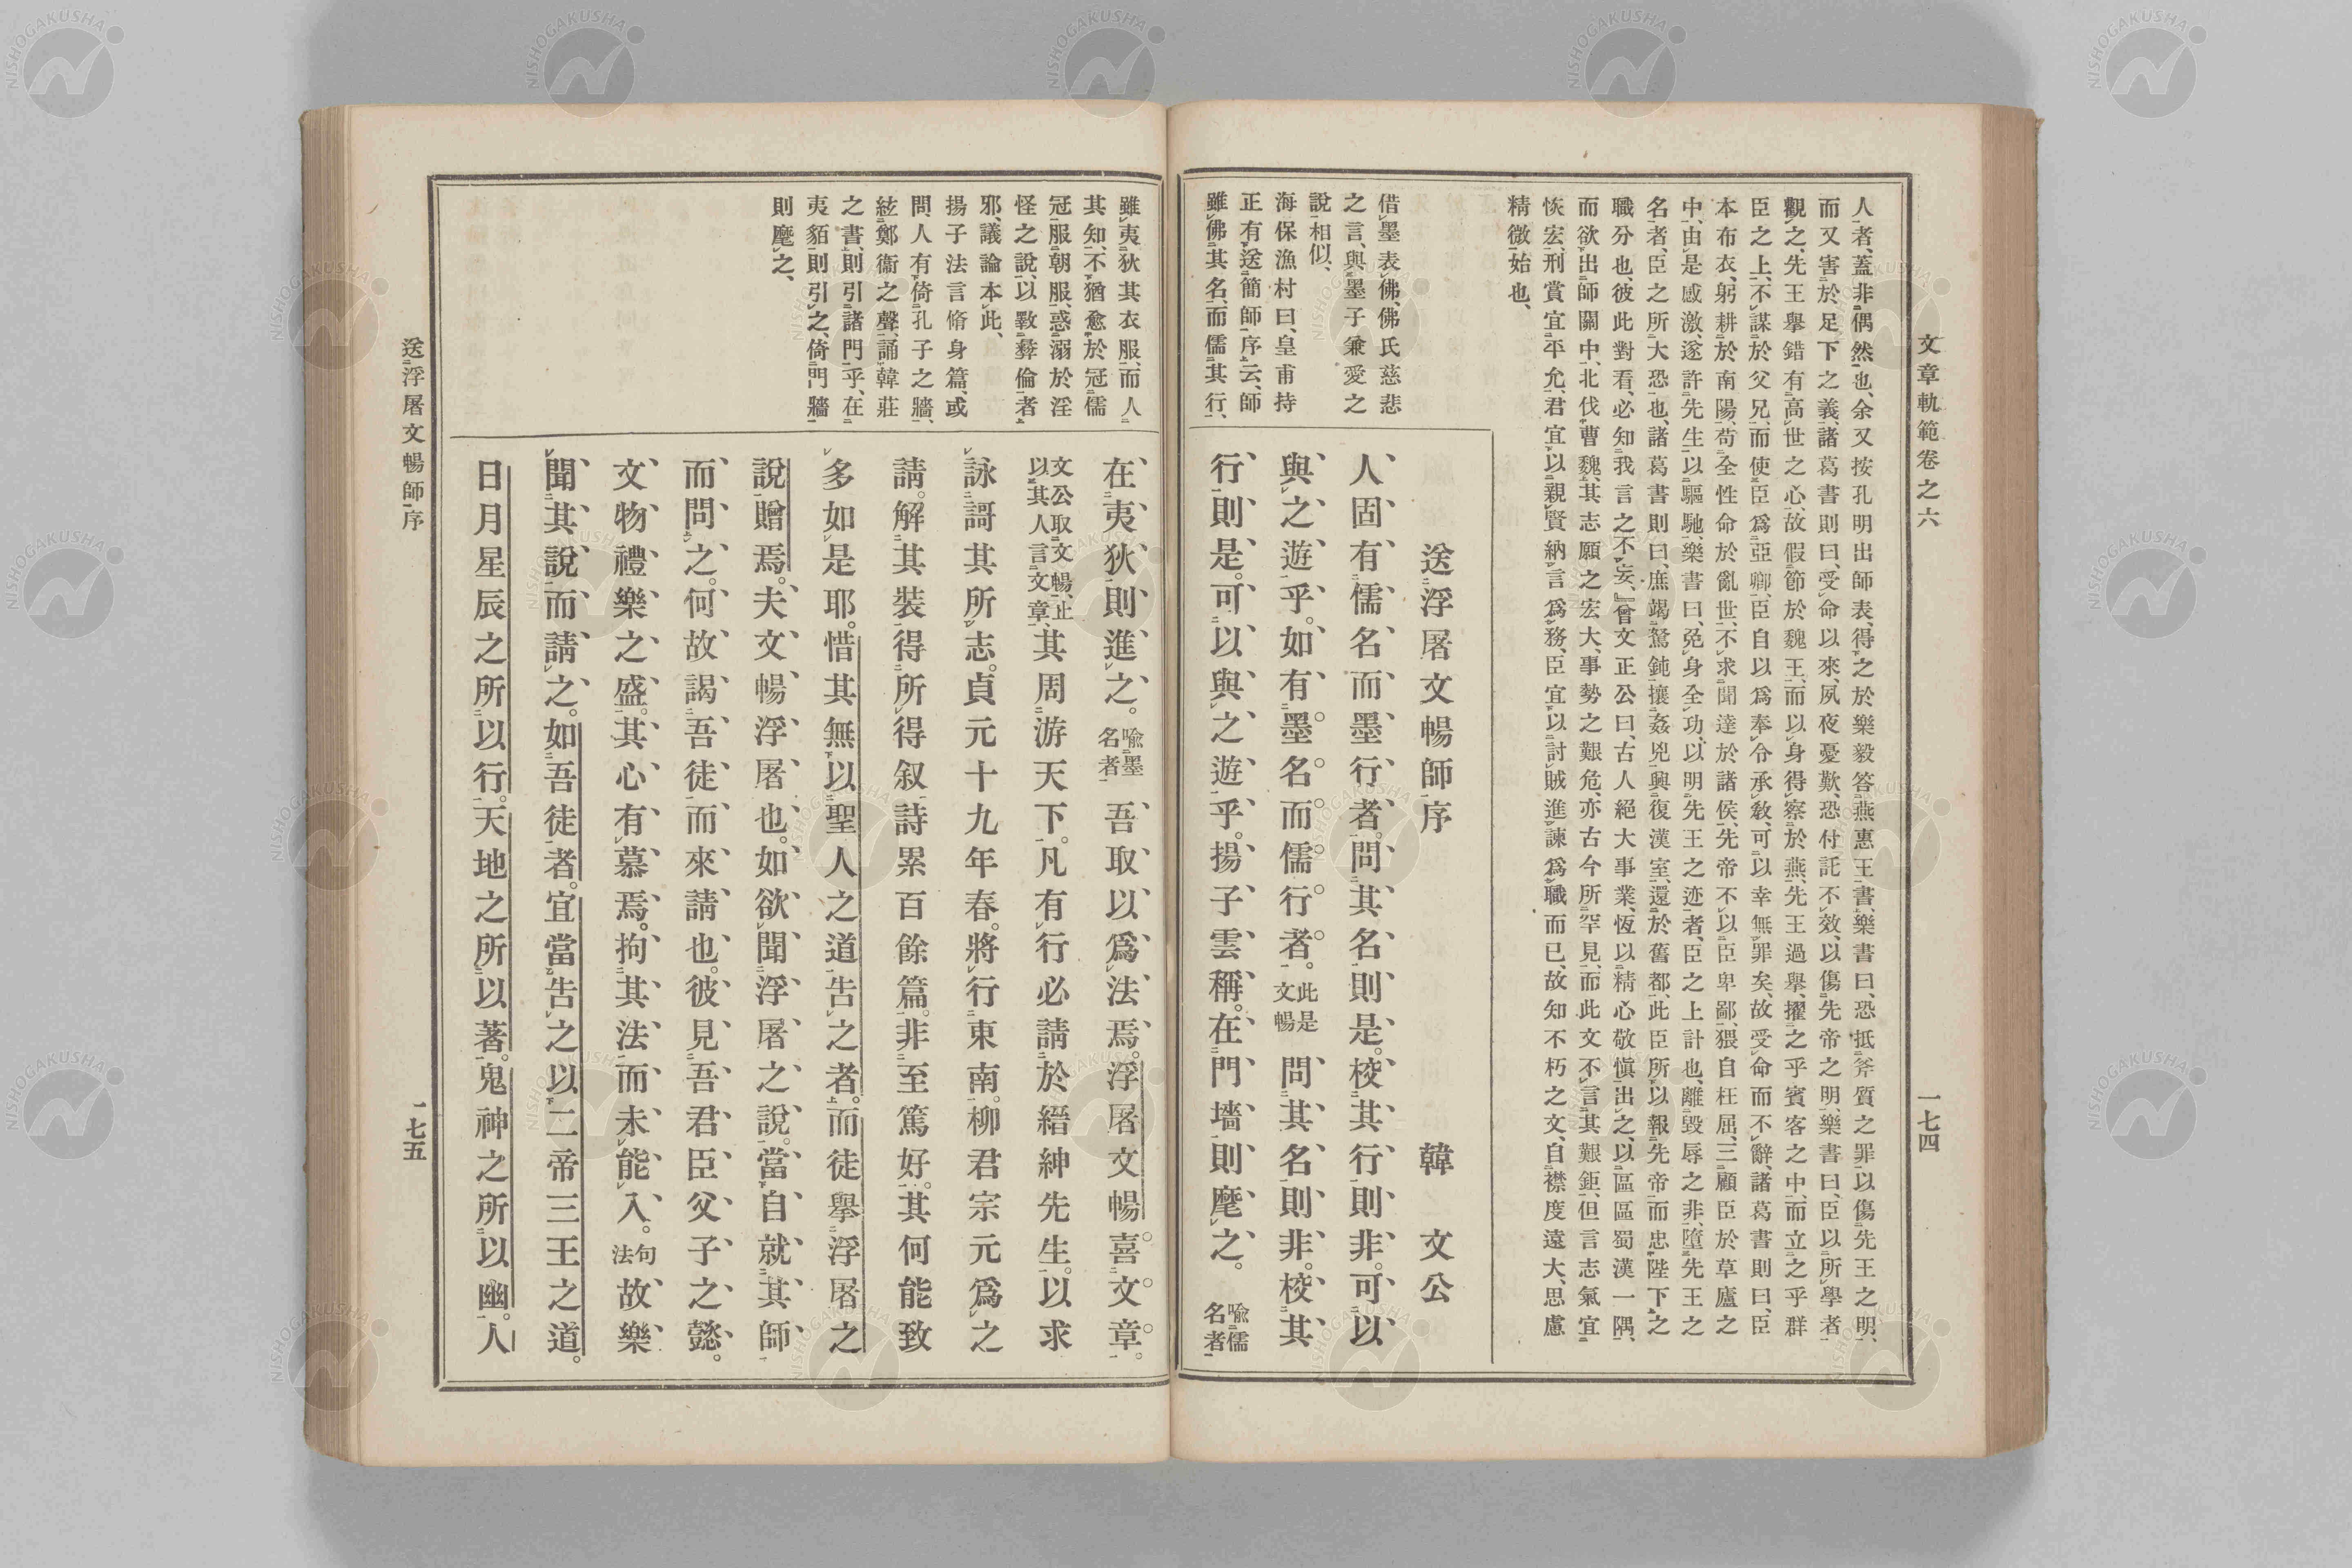 文章軌範卷之六
一七四
人者、蓋非偶然也、余又按孔明出師表、得之於樂毅答燕惠王書、樂書曰、恐抵斧質之罪、以傷先王之明、
而又害於足下之義、諸葛書則曰、受命以來、夙夜憂歎、恐付託不效、以傷先帝之明、樂書曰、臣以所學者
觀之、先王舉錯有高世之心、故假節於魏王、而以身得察於燕、先王過舉、擢之乎賓客之中、而立之乎群
臣之上、不謀於父兄、而使臣爲亞卿、臣自以爲奉令承敎、可以幸無罪矣、故受命而不辭、諸葛書則曰、臣
本布衣、躬耕於南陽、苟全性命於亂世、不求聞達於諸侯、先帝不以臣卑鄙、猥自枉屈、三顧臣於草廬之
中、由是感激、遂許先生以驅馳、樂書曰、免身全功、以明先王之迹者、臣之上計也、離毀辱之非、墮先王之
名者、臣之所大恐也、諸葛書則曰、庶竭駑鈍、攘姦兇、興復漢室、還於舊都、此臣所以報先帝而忠陛下之
職分也、彼此對看、必知我言之不妄、曾文正公曰、古人絕大事業、恆以精心敬愼出之、以區區蜀漢一隅、
而欲出師關中、北伐曹魏、其志願之宏大、事勢之艱危、亦古今所罕見、而此文不言其艱鉅、但言志氣宜
恢宏、刑賞宜平允、君宜以親賢納言爲務、臣宜以討賊進諫爲職而已、故知不朽之文、自襟度遠大、思慮
精微始也、
借墨表佛、佛氏慈悲
之言、與墨子兼愛之
說相似、
海保漁村曰、皇甫持
正有送簡師序云、師
雖佛其名、而儒其行、
送浮屠文暢師序 韓文公
人固有儒名而墨行者。問其名則是。校其行則非。可以
與之遊乎。如有墨名而儒行者。此是文暢 問其名則非。校其
行則是。可以與之遊乎。揚子雲稱。在門墻則麾之。喩儒名者
雖夷狄其衣服、而人
其知、不猶愈於冠儒
冠服朝服、惑溺於淫
怪之說、以斁彝倫者
邪、議論本此、
揚子法言脩身篇、或
問、人有倚孔子之牆、
絃鄭衞之聲、誦韓莊
之書、則引諸門乎、在
夷貊則引之、倚門牆
則麾之、
在夷狄則進之。喩墨名者 吾取以爲法焉。浮屠文暢喜文章。
文公取文暢、止以其人言文章、 其周游天下。凡有行必請於縉紳先生。以求
詠謌其所志。貞元十九年春。將行東南。柳君宗元爲之
請。解其裝。得所得叙詩累百餘篇。非至篤好。其何能致
多如是耶。惜其無以聖人之道告之者。而徒舉浮屠之
說贈焉。夫文暢浮屠也。如欲聞浮屠之說。當自就其師
而問之。何故謁吾徒而來請也。彼見吾君臣父子之懿。
文物禮樂之盛。其心有慕焉。拘其法而未能入。句法 故樂
聞其說而請之。如吾徒者。宜當告之以二帝三王之道。
日月星辰之所以行。天地之所以著。鬼神之所以幽。人
送浮屠文暢師序
一七五